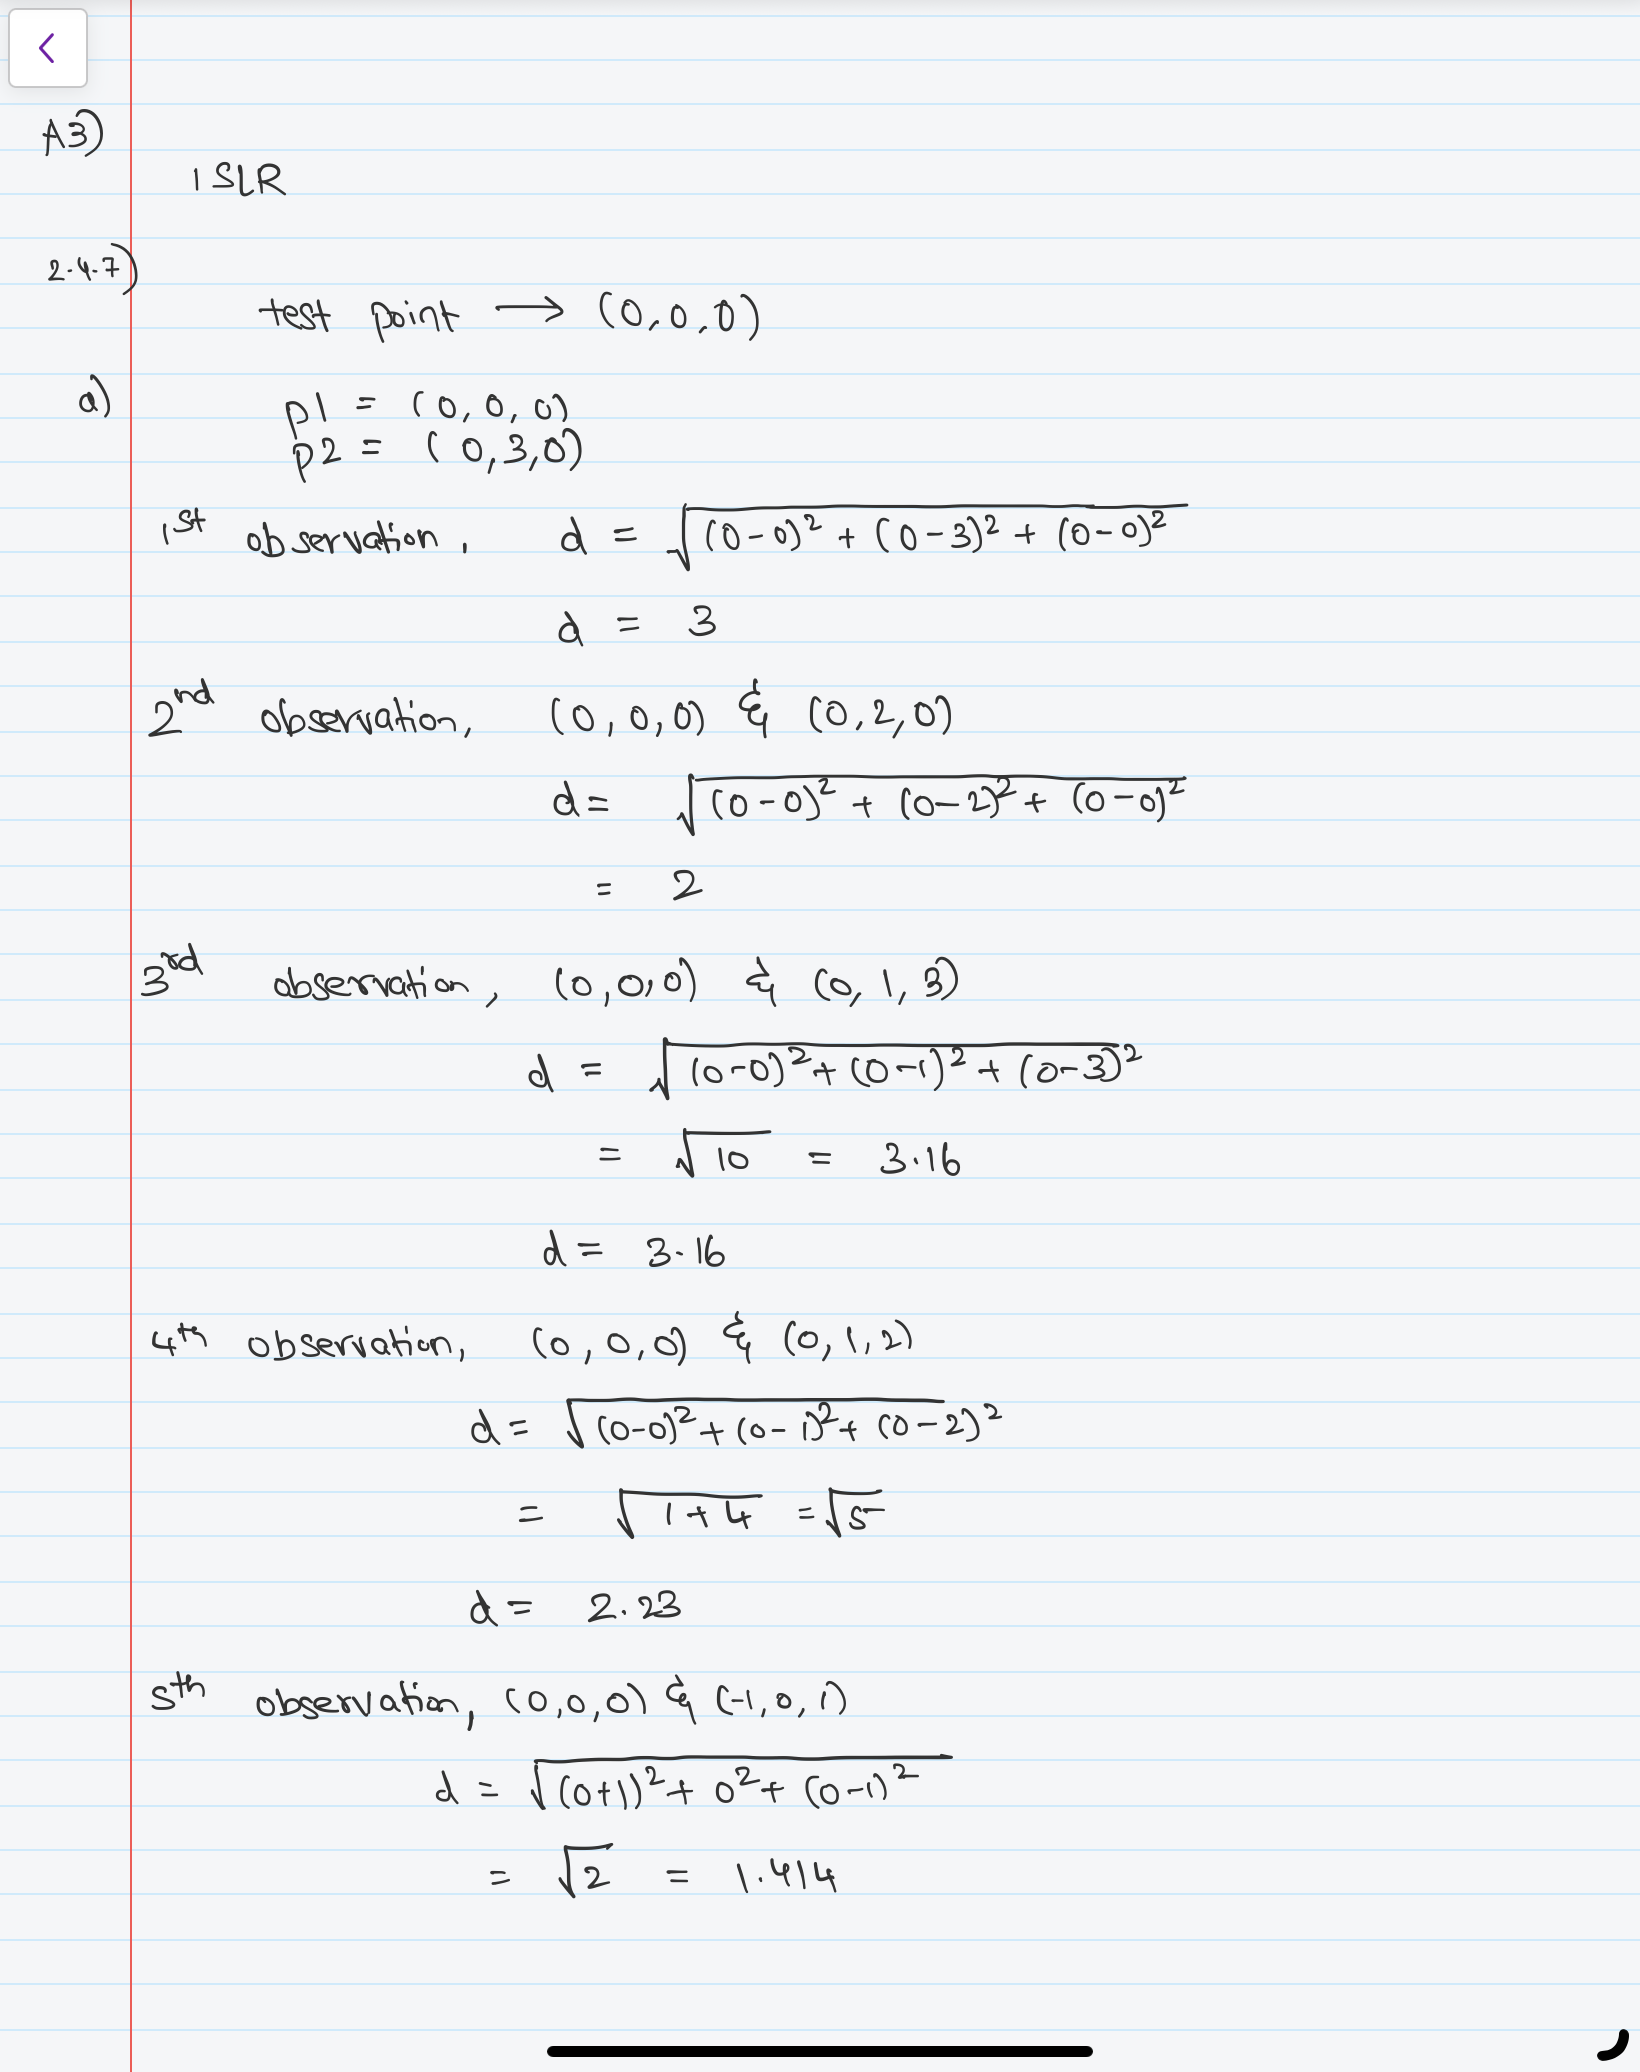 A3)
ISLR
2.4.7)
test point → (0,0,0)
a)
p1 = (0,0,0)
p2 = (0,3,0)
1st observation, d = √(0-0)² + (0-3)² + (0-0)²
d = 3
2nd observation, (0,0,0) & (0,2,0)
d = √(0-0)² + (0-2)² + (0-0)²
= 2
3rd observation, (0,0,0) & (0,1,3)
d = √(0-0)² + (0-1)² + (0-3)²
= √10 = 3.16
d = 3.16
4th observation, (0,0,0) & (0,1,2)
d = √(0-0)² + (0-1)² + (0-2)²
= √1+4 = √5
d = 2.23
5th observation, (0,0,0) & (-1,0,1)
d = √(0+1)² + 0² + (0-1)²
= √2 = 1.414